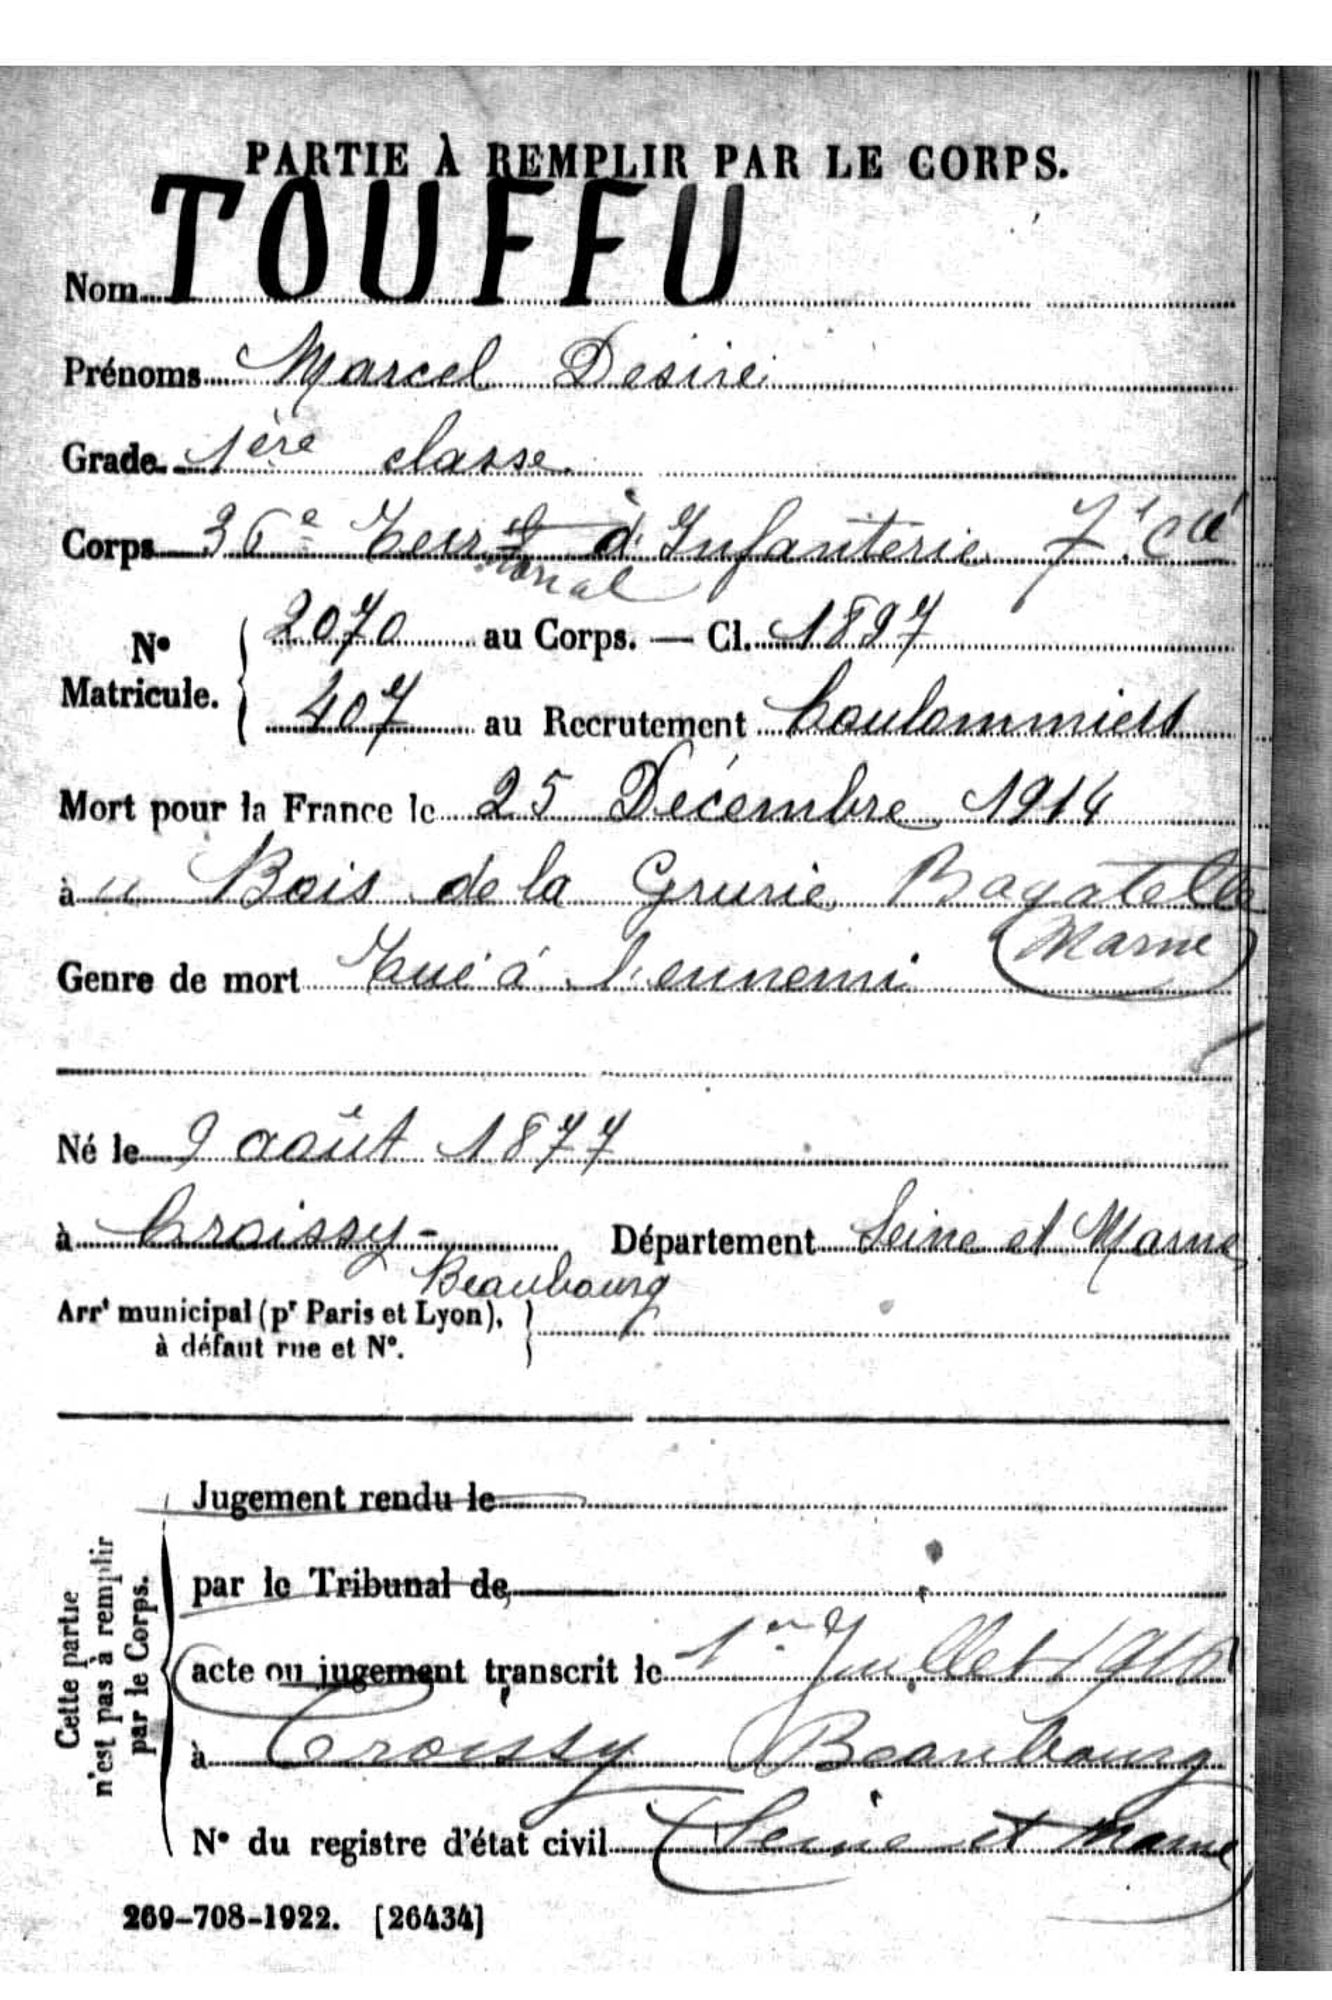 PARTIE À REMPLIR PAR LE CORPS.
Nom TOUFFU
Prénoms Marcel Desiré
Grade 1ère classe
Corps 36e Terr d'Infanterie 7e Cie
torial
2070 au Corps. — Cl. 1897
No Matricule.
407 au Recrutement Coulommiers
Mort pour la France le 25 Décembre 1914
à u Bois de la Grurie Bagatelle
(Marne)
Genre de mort Tué à l'ennemi
Né le 9 août 1877
à Croissy- Département Seine et Marne
Beaubourg
Arrt municipal (pr Paris et Lyon),
à défaut rue et No.
Cette partie n'est pas à remplir par le Corps.
Jugement rendu le
par le Tribunal de
acte ou jugement transcrit le 1er Juillet
à Croissy Beaubourg
No du registre d'état civil (Seine et Marne)
269-708-1922. [26434]